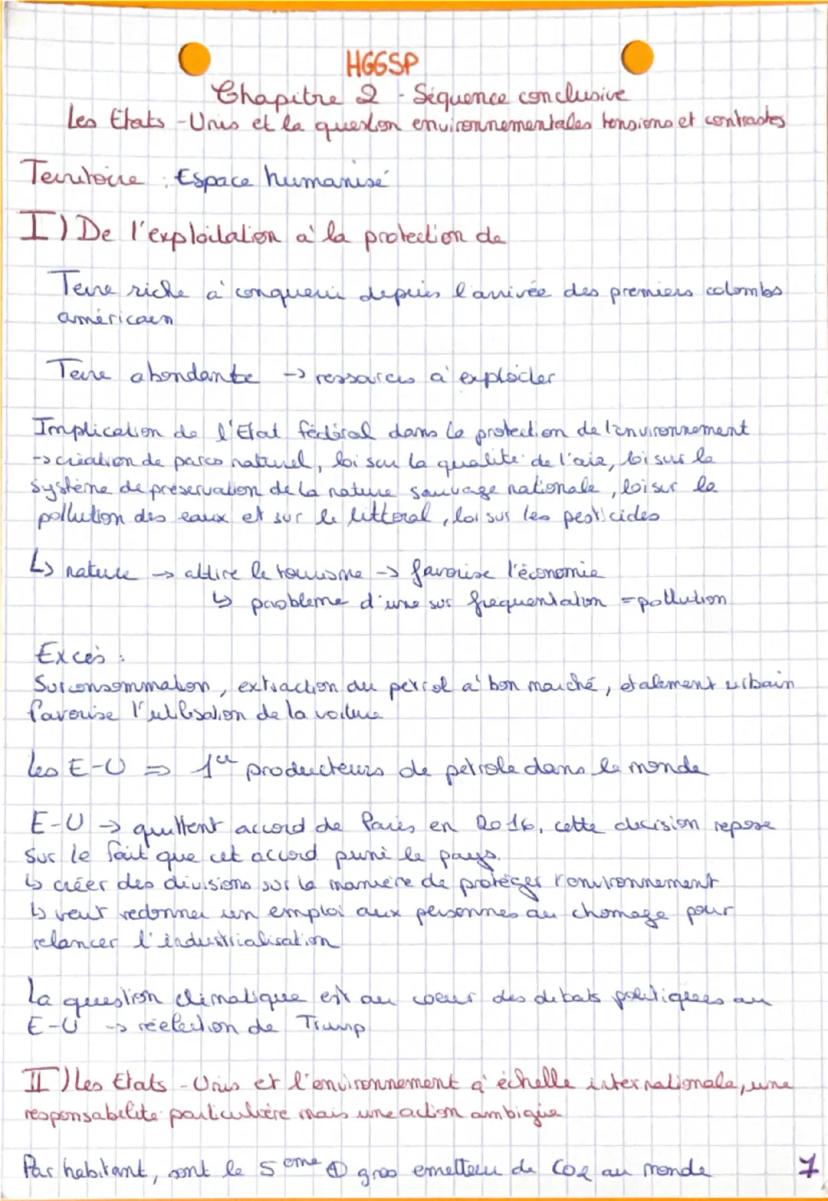 HGGSP
Chapitre 2 - Séquence conclusive
Les Etats-Unis et la question environnementales tensions et contrastes
Territoire : Espace humanisé
I) De l'exploitation à la protection de
Terre riche à conquerir depuis l'arrivée des premiers colombs
américaen
Terre abondante → ressources à exploiter
Implication de l'Etat fédéral dans la protection de l'environnement
→ création de parcs naturel, loi sur la qualité de l'air, loi sur le
système de préservation de la nature sauvage nationale, loi sur la
pollution des eaux et sur le littoral, loi sur les pesticides
↳ nature → attire le tourisme → favorise l'économie
↳ problème d'une sur frequentation = pollution
Excès :
Surconsommation, extraction du petrol à bon marché, étalement urbain
favorise l'utilisation de la voiture
Les E-U ⇒ 1er producteurs de pétrole dans le monde
E-U → quittent accord de Paris en 2016, cette decision repose
sur le fait que cet accord puni le pays.
↳ créer des divisions sur la manière de protéger l'environnement
↳ veut redonner un emploi aux personnes au chomage pour
relancer l'industrialisation
La question climatique est au coeur des debats politiques au
E-U → réelection de Trump
II) Les Etats-Unis et l'environnement à échelle internationale, une
responsabilité particulière mais une action ambigüe
Par habitant, sont le 5eme ⊕ gros emetteur de CO2 au monde
1